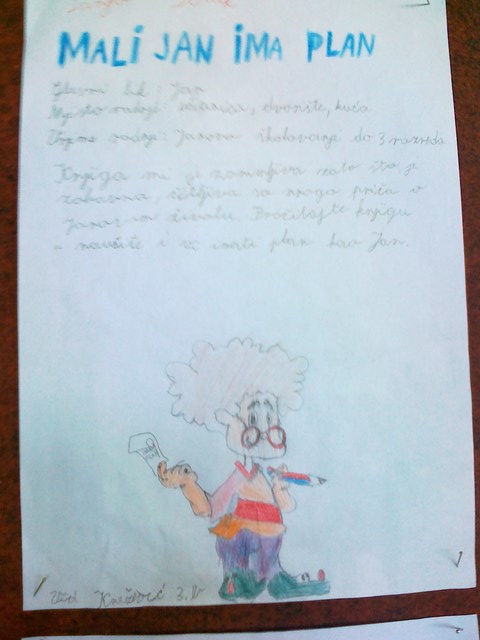 MALI JAN IMA PLAN
Glavni lik: Jan
Mjesto radnje: učionica, dvorište, kuća
Vrijeme radnje: Janovo školovanje do 3 razreda
Knjiga mi je zanimljiva zato što je
zabavna, čitljiva sa mnogo priča o
Janovom životu. Pročitajte knjigu
i naučite i vi imati plan kao Jan.
Knežević 3.b